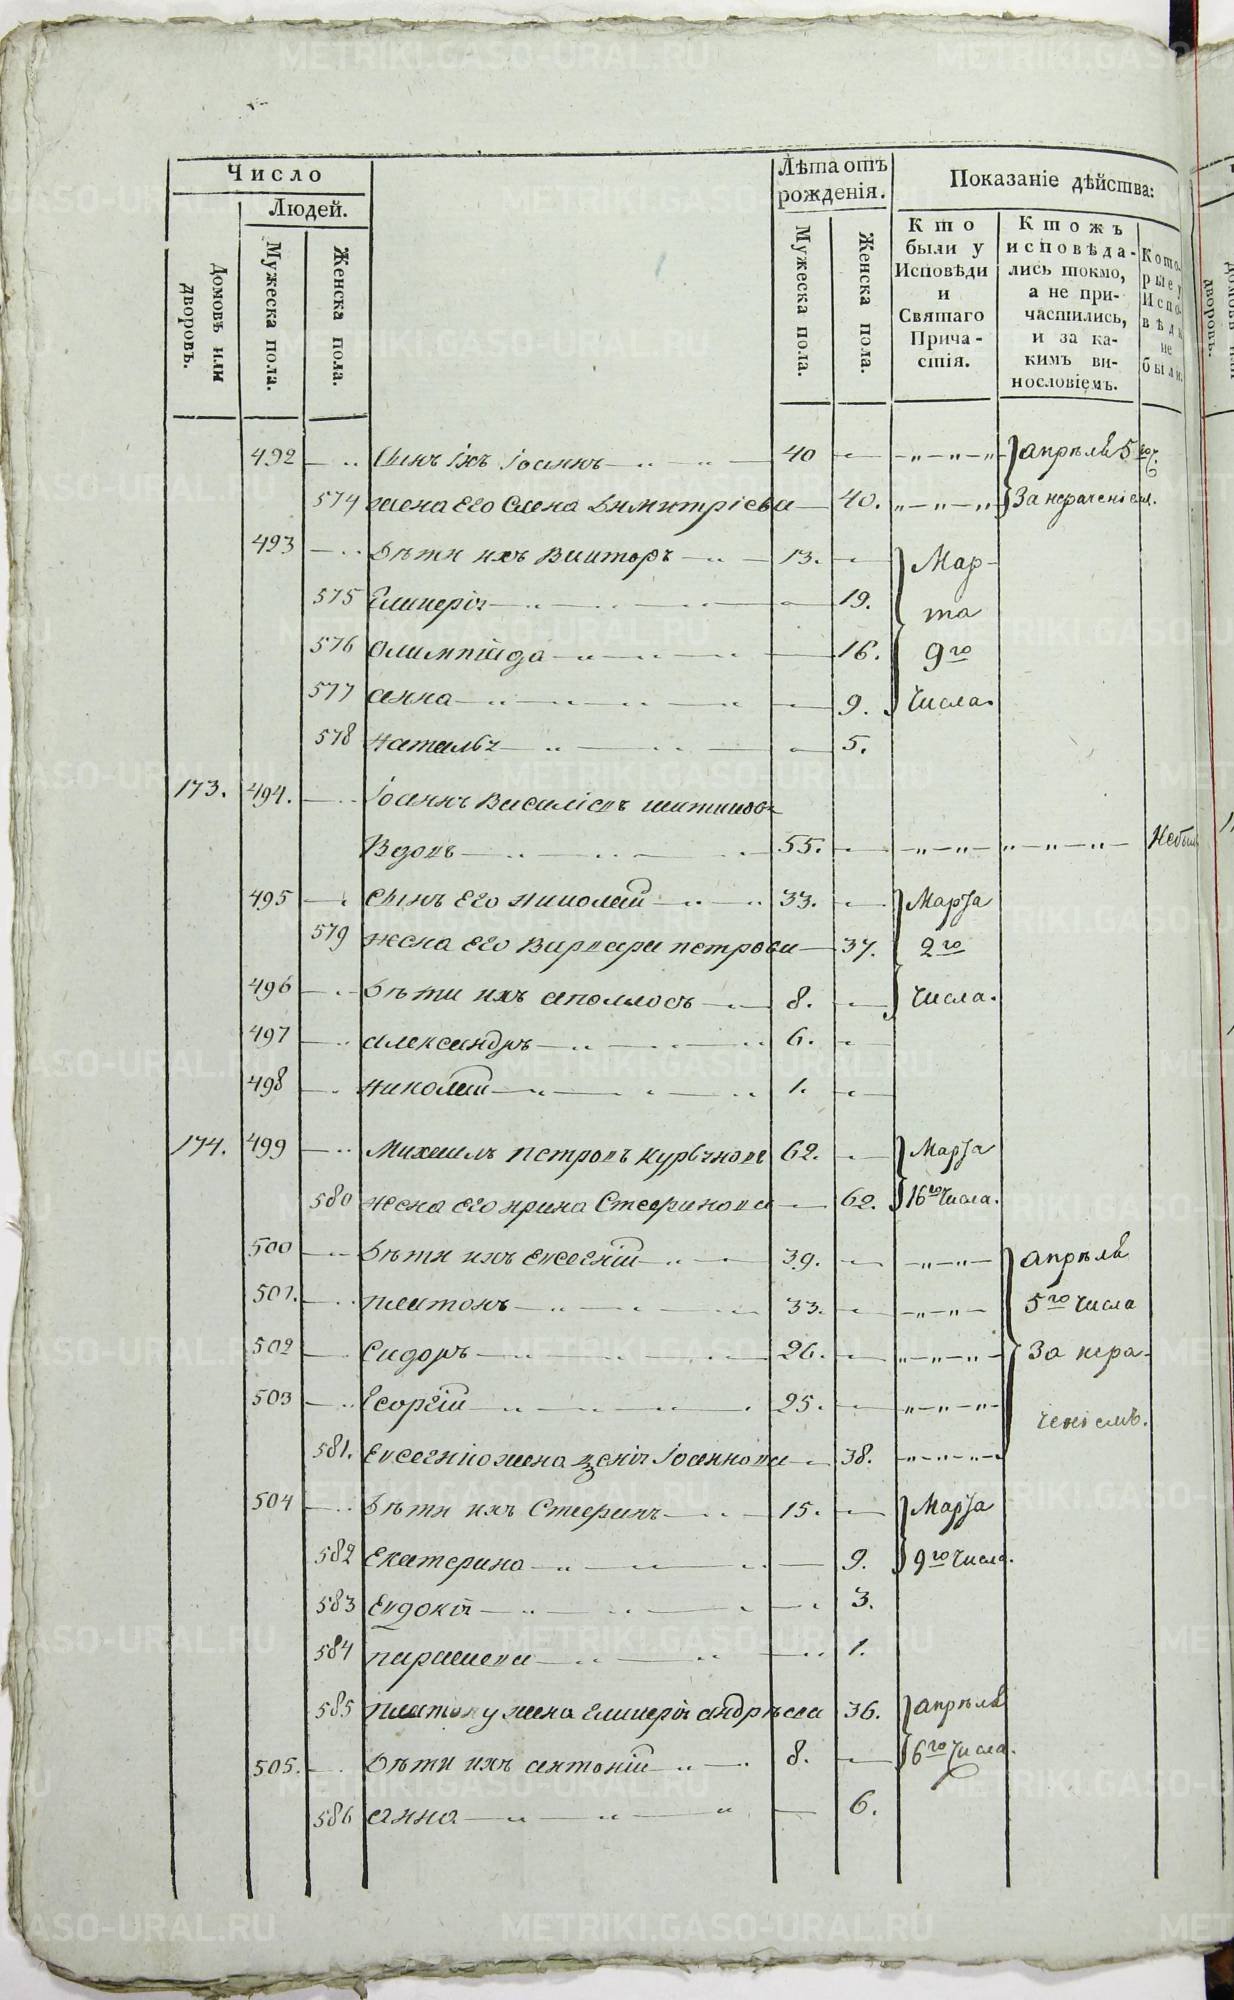 Число
Людей.
Домовъ или дворовъ.
Мужеска пола.
Женска пола.
Лѣта отъ рожденія.
Мужеска пола.
Женска пола.
Показаніе дѣйства:
Кто были у Исповѣди и Святаго Прича-стія.
Ктожъ исповѣда-лись токмо, а не при-частились, и за ка-кимъ ви-нословіемъ.
Кото-рые у Испо-вѣди не были.
492 Сынъ ихъ Іоаннъ 40 апрѣля 5го ч.
574 жена его Елена Димитріева 40. За нераченіем.
493 Дѣти ихъ Викторъ 13. Мар-
575 Гликерія 19. та
576 Олимпіада 16. 9го
577 анна 9. Числа.
578 Наталья 5.
173. 494. Іоаннъ Василіевъ
Вдовъ 55. Небылъ
495 Сынъ его Николай 33. Марта
579 жена его Варвара петрова 37. 2го
496 Дѣти ихъ аполлосъ 8. Числа.
497 александръ 6.
498 Николай 1.
174. 499 Михаилъ петровъ 62. Марта
580 жена его ирина Стефанова 62. 16го Числа.
500 Дѣти ихъ Евсегній 39. апрѣля
501. платонъ 33. 5го Числа
502 Сидоръ 26. За нера-
503 Георгій 25. ченіемъ.
581. Евсегнію жена Ксенія Іоаннова 38.
504 Дѣти ихъ Стефанъ 15. Марта
582 Екатерина 9. 9го Числа.
583 Евдокія 3.
584 параскева 1.
585 платону жена Гликерія андрѣева 36. апрѣля
505. Дѣти ихъ антоній 8. 6го Числа.
586 анна 6.
METRIKI.GASO-URAL.RU